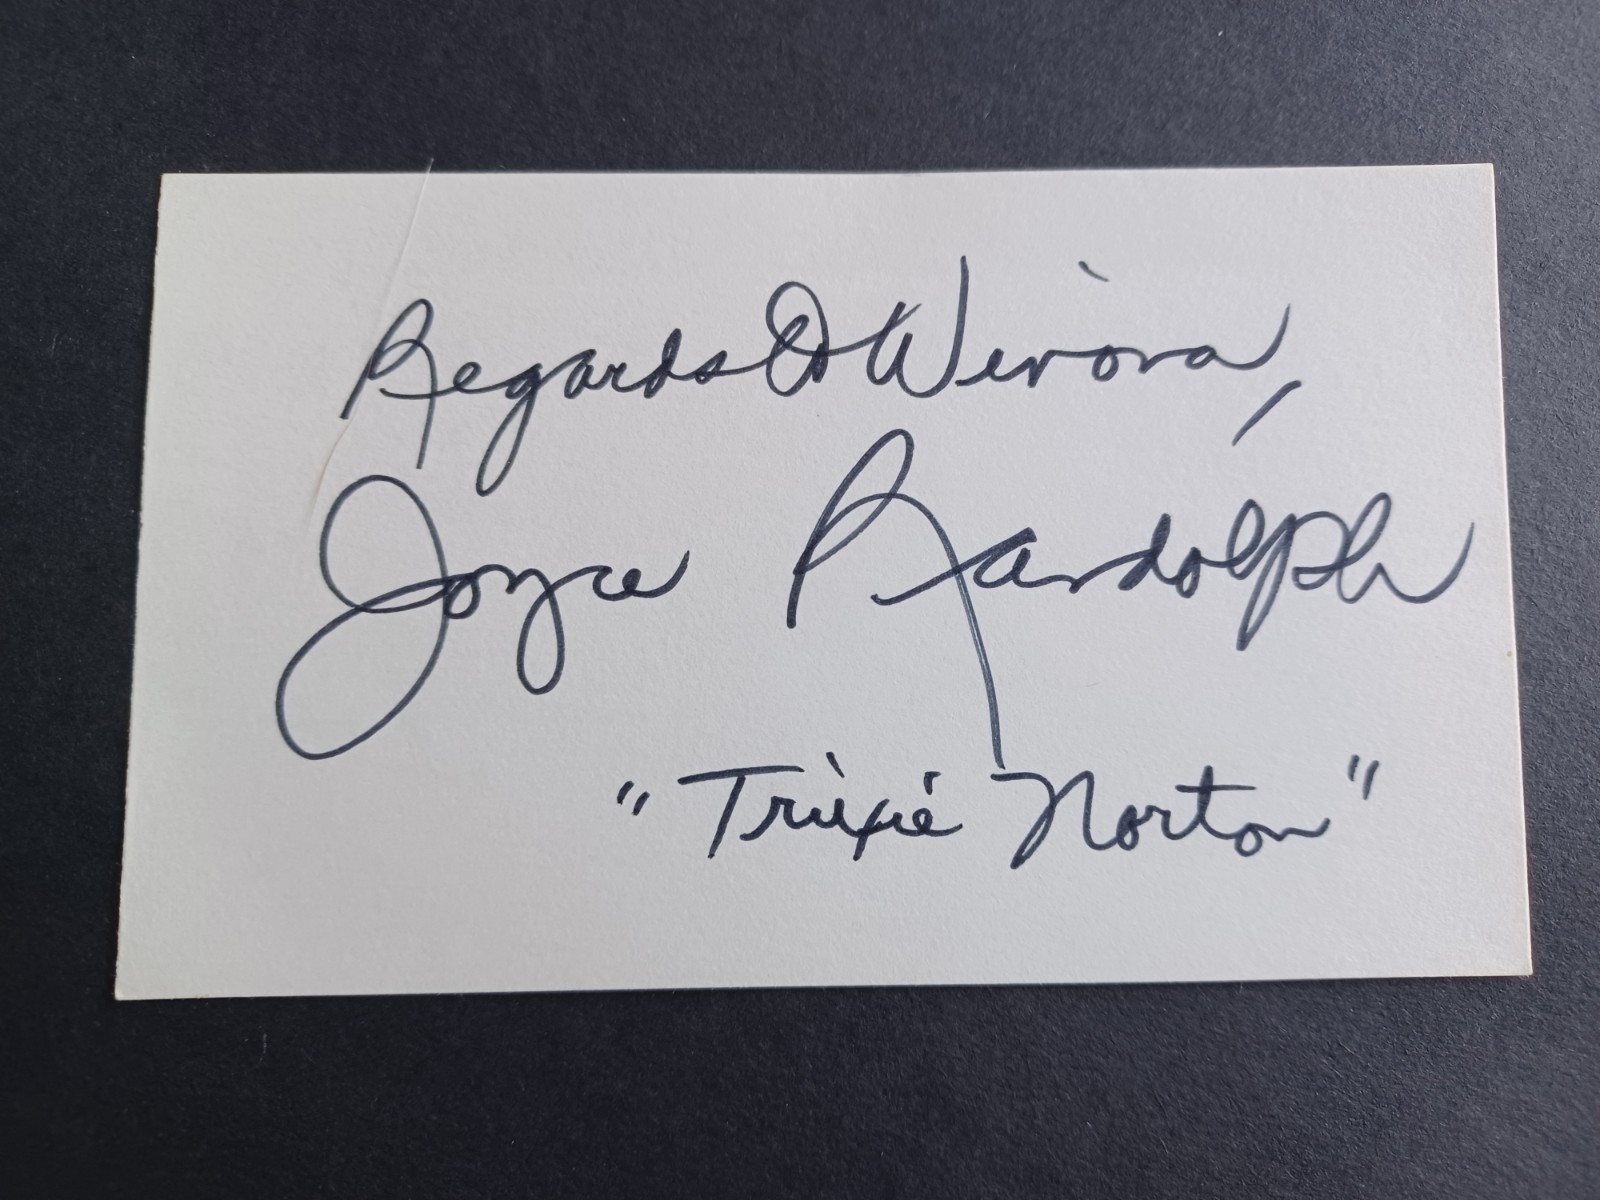 Regards to Winona,
Joyce Randolph
"Trixie Norton"